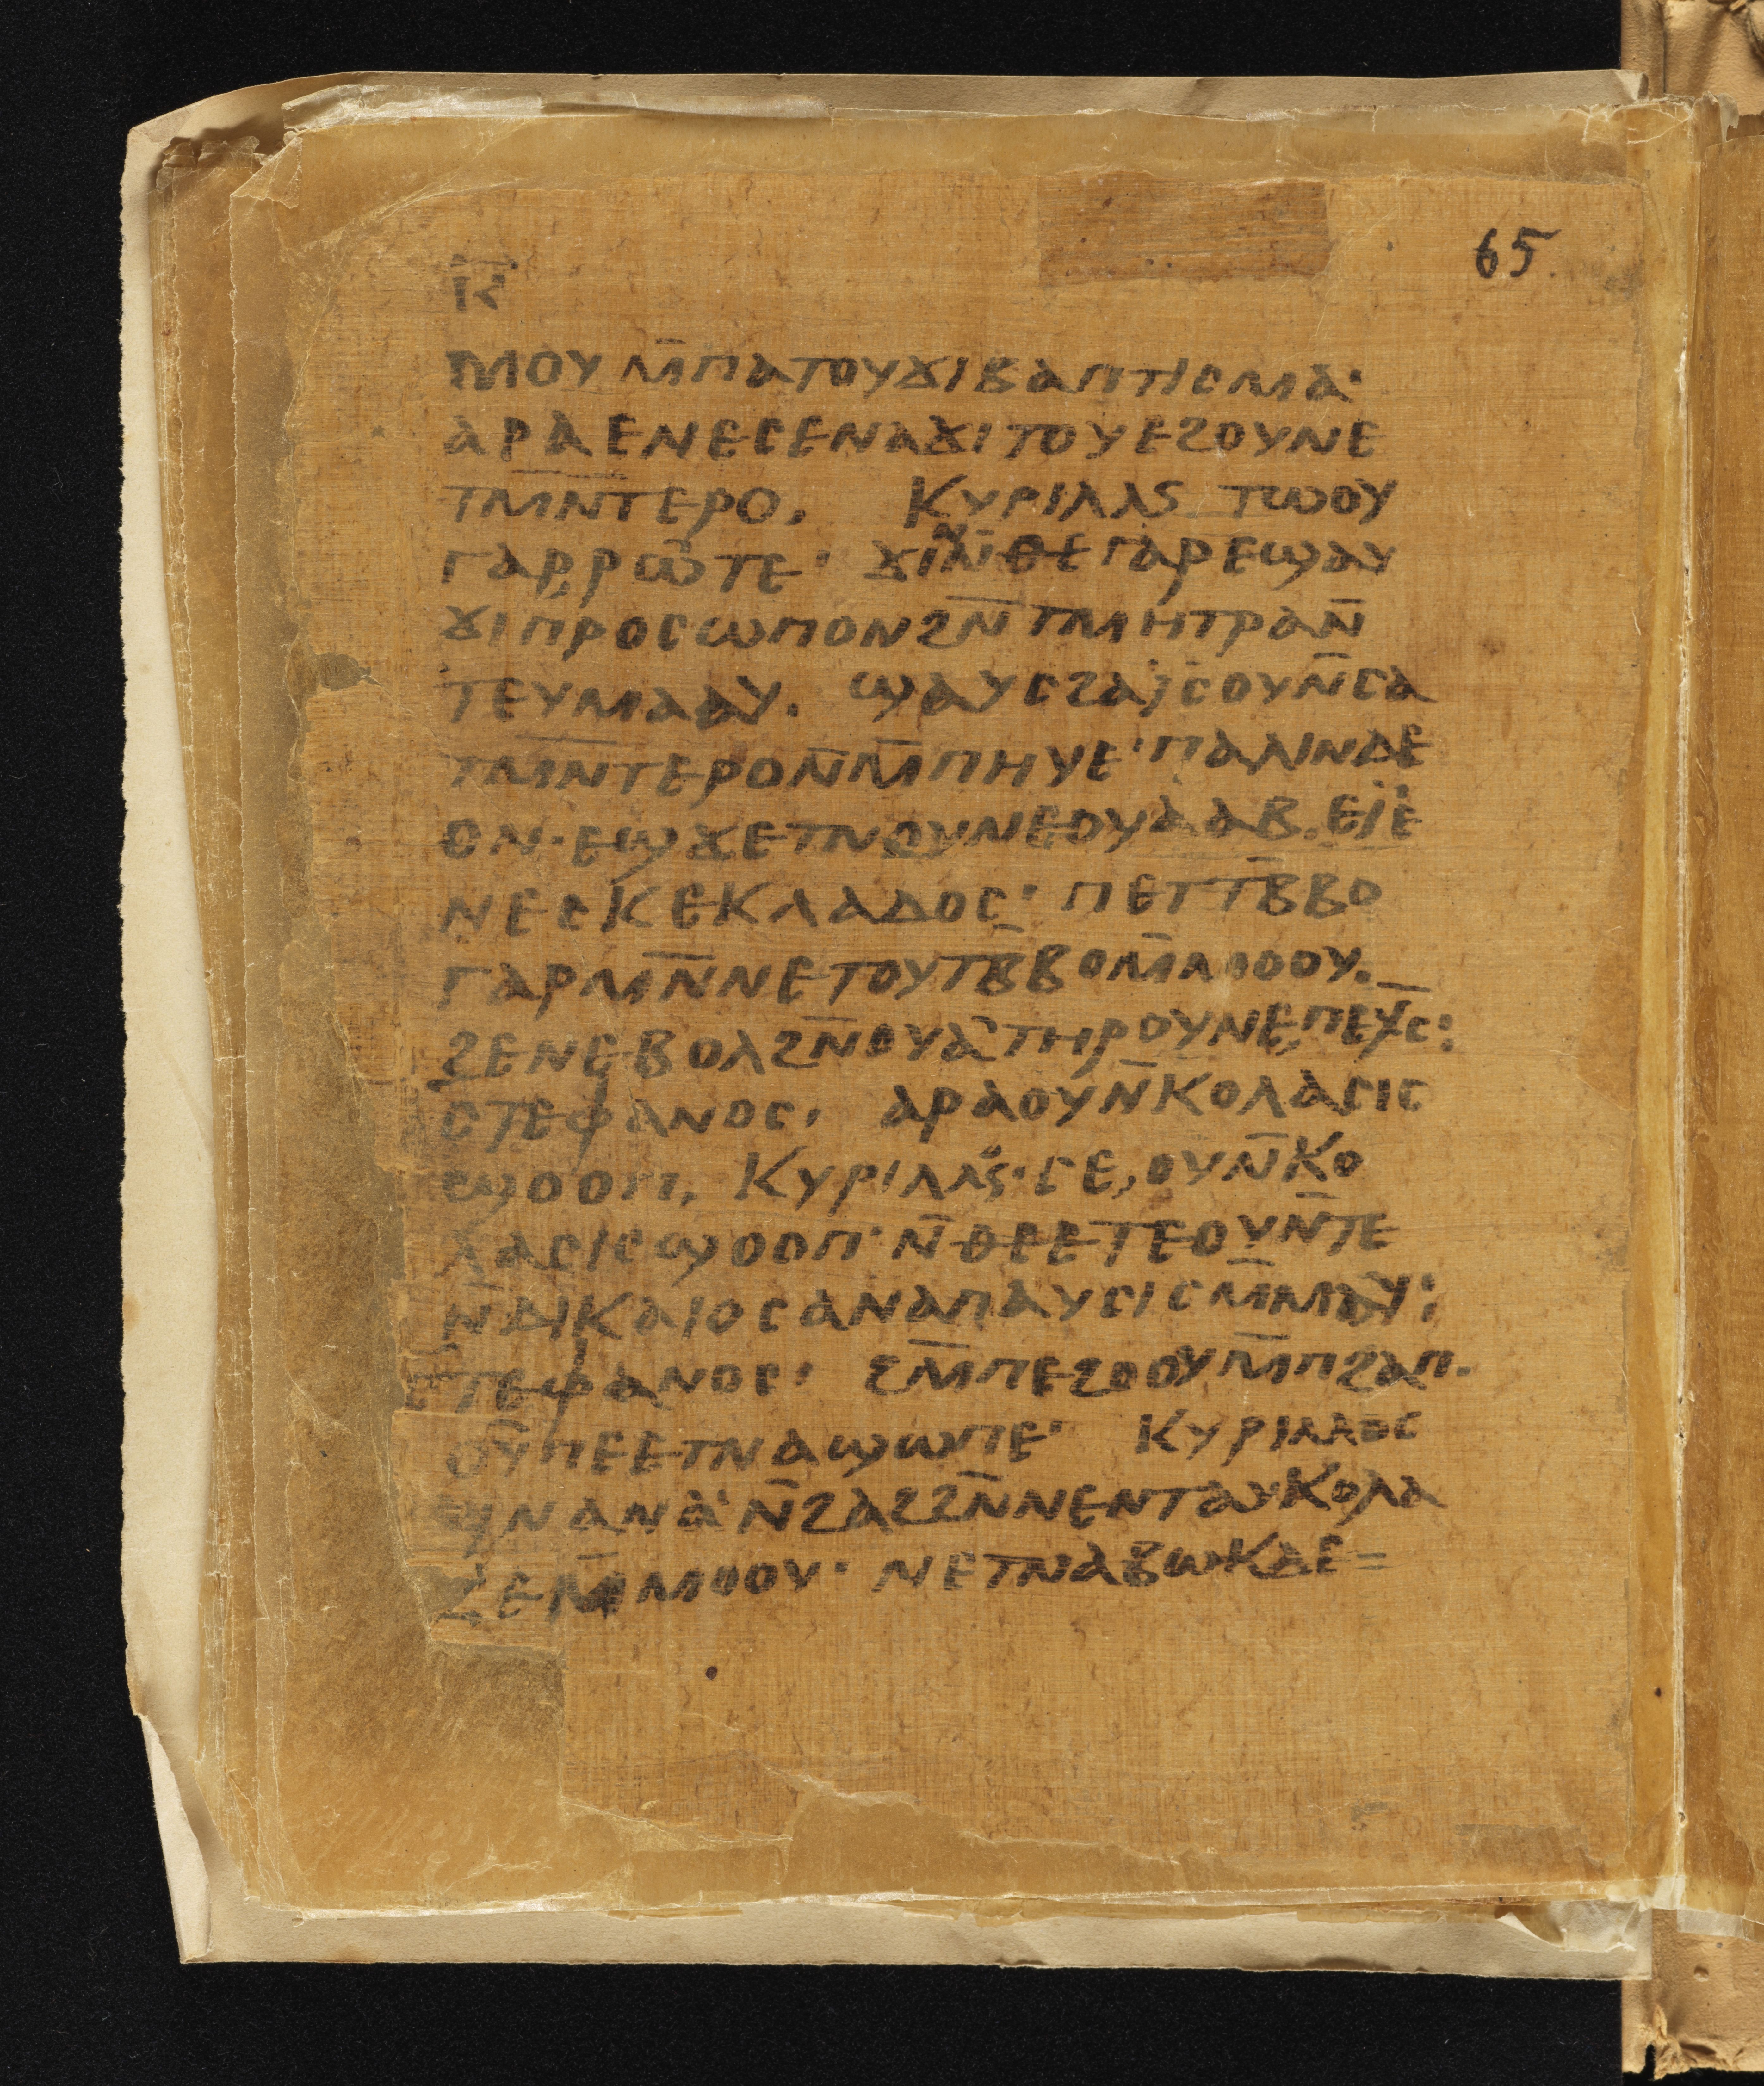 65.
ⲓ̅ⲋ̅
ⲙⲟⲩ ⲙ̅ⲡⲁⲧⲟⲩϫⲓⲃⲁⲡⲧⲓⲥⲙⲁ·
ⲁⲣⲁⲉⲛⲉⲥⲉⲛⲁϫⲓⲧⲟⲩⲉϩⲟⲩⲛⲉ
ⲧⲙⲛ̅ⲧⲉⲣⲟ, ⲕⲩⲣⲓⲗⲗⲥ ⲧⲱⲟⲩ
ⲅⲁⲣⲣⲱ̅ⲧⲉ·
ϫⲓⲡⲣⲟⲥⲱⲡⲟⲛϩⲛ̅ⲧⲙⲏⲧⲣⲁⲛ̅
ⲧⲉⲩⲙⲁⲁⲩ. ϣⲁⲩⲥϩⲁⲓ̈ⲥⲟⲩⲛ̅ⲥⲁ
ⲧⲙⲛ̅ⲧⲉⲣⲟⲛ̅ⲙ̅ⲡⲏⲩⲉ·ⲡⲁⲗⲓⲛⲇⲉ
ⲟⲛ·ⲉϣϫⲉⲧⲛⲟⲩⲛⲉⲟⲩⲁⲁⲃ.ⲉⲓ̈ⲉ
ⲛⲉⲥⲕⲉⲕⲗⲁⲇⲟⲥ· ⲡⲉⲧⲧⲃ̅ⲃⲟ
ⲅⲁⲣⲙⲛ̅ⲛⲉⲧⲟⲩⲧⲃ̅ⲃⲟⲙ̅ⲙⲟⲟⲩ.
ϩⲉⲛⲉⲃⲟⲗϩⲛ̅ⲟⲩⲁ̅ⲧⲏⲣⲟⲩⲛⲉ,ⲡⲉⲭ̅ⲥ̅:
ⲥⲧⲉⲫⲁⲛⲟⲥ, ⲁⲣⲁⲟⲩⲛ̅ⲕⲟⲗⲁⲥⲓⲥ
ϣⲟⲟⲡ, ⲕⲩⲣⲓⲗⲗⲟⲥ·ⲥⲉ,ⲟⲩⲛ̅ⲕⲟ
ⲗⲁⲥⲓⲥϣⲟⲟⲡ·ⲛ̅ⲑⲉⲉⲧⲉⲟⲩⲛ̅ⲧⲉ
ⲛ̅ⲇⲓⲕⲁⲓⲟⲥⲁⲛⲁⲡⲁⲩⲥⲓⲥⲙ̅ⲙⲁⲩ:
ⲥⲧⲉⲫⲁⲛⲟⲥ· ϩⲙ̅ⲡⲉϩⲟⲟⲩⲙ̅ⲡϩⲁⲡ.
ⲟⲩⲡⲉⲉⲧⲛⲁϣⲱⲡⲉ· ⲕⲩⲣⲓⲗⲗⲟⲥ
ϥⲛⲁⲛⲁ·ⲛ̅ϩⲁϩϩⲛ̅ⲛⲉⲛⲧⲁⲩⲕⲟⲗⲁ
ⲍⲉⲙ̅ⲙⲟⲟⲩ· ⲛⲉⲧⲛⲁⲃⲱⲕⲇⲉ=